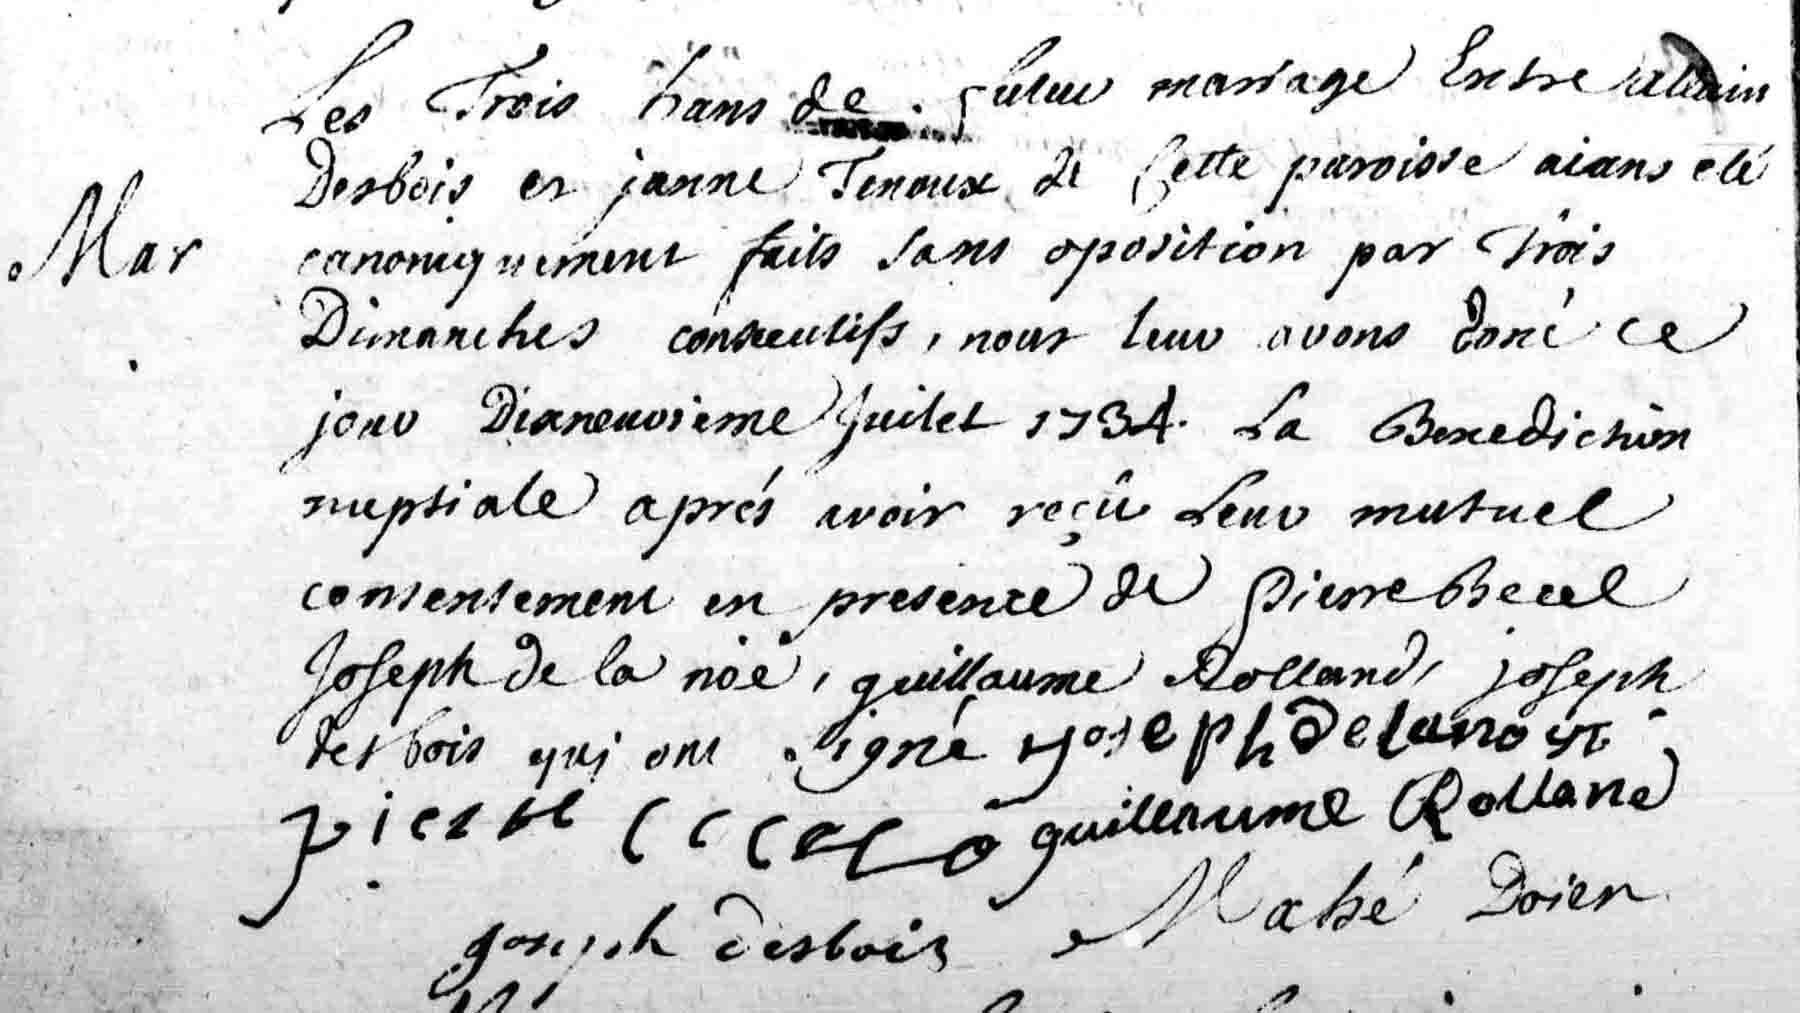 Les Trois bans de futur mariage Entre allain
Desbois et janne Tenoux de Cette paroisse aians eté
Mar
canoniquement faits sans oposition par Trois
Dimanches consecutifs, nous leur avons doné ce
jour Dixneuvieme Juilet 1734. La Benediction
nuptiale aprés avoir reçû Leur mutuel
consentement en presence de Pierre Becel
Joseph de la nöe, guillaume Rolland, joseph
desbois qui ont signé Joseph de lanoë
pierre guillaume Rolland
joseph desbois Mahé Doien